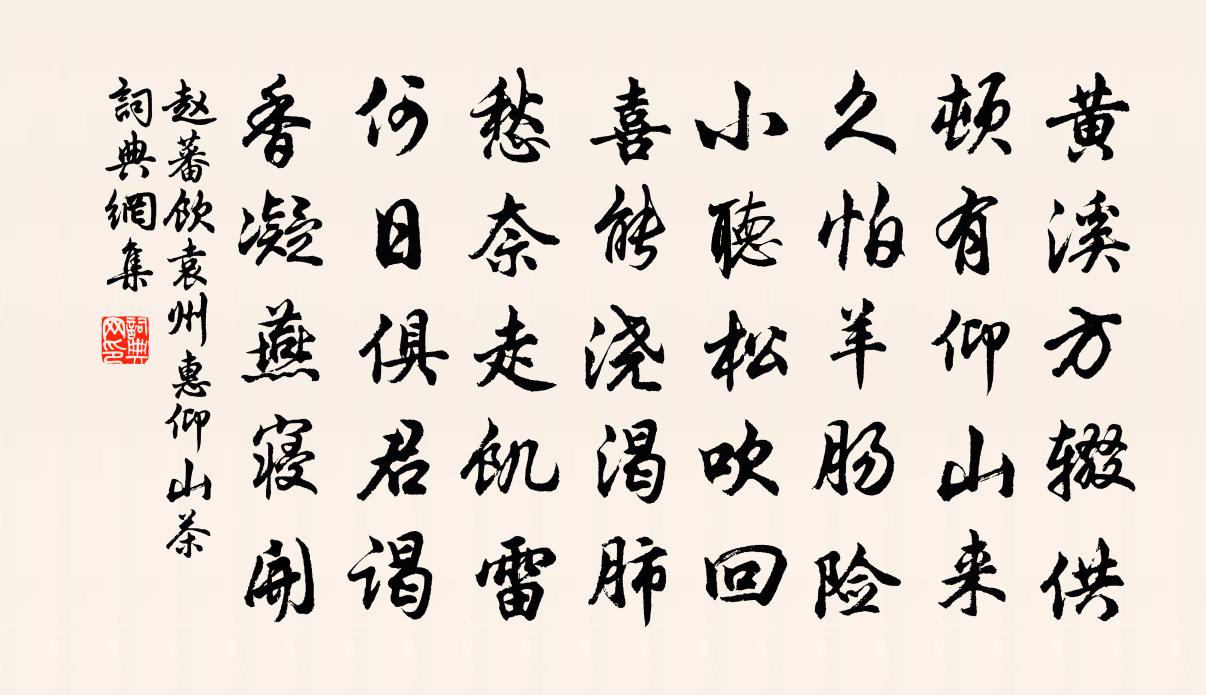 黄溪方辍供
顿有仰山来
久怕羊肠险
小聽松吹回
喜能浇渴肺
愁奈走飢雷
何日俱君谒
香凝燕寝開
赵蕃飲袁州惠仰山茶
詞典網集
詞典网印